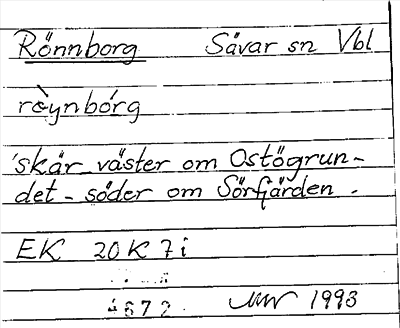 Rönnborg Sävar sn Vbl
rèynbórg
'skär väster om Ostögrun-
det - söder om Sörfjärden.
EK 20 K 7 i
4672
1993